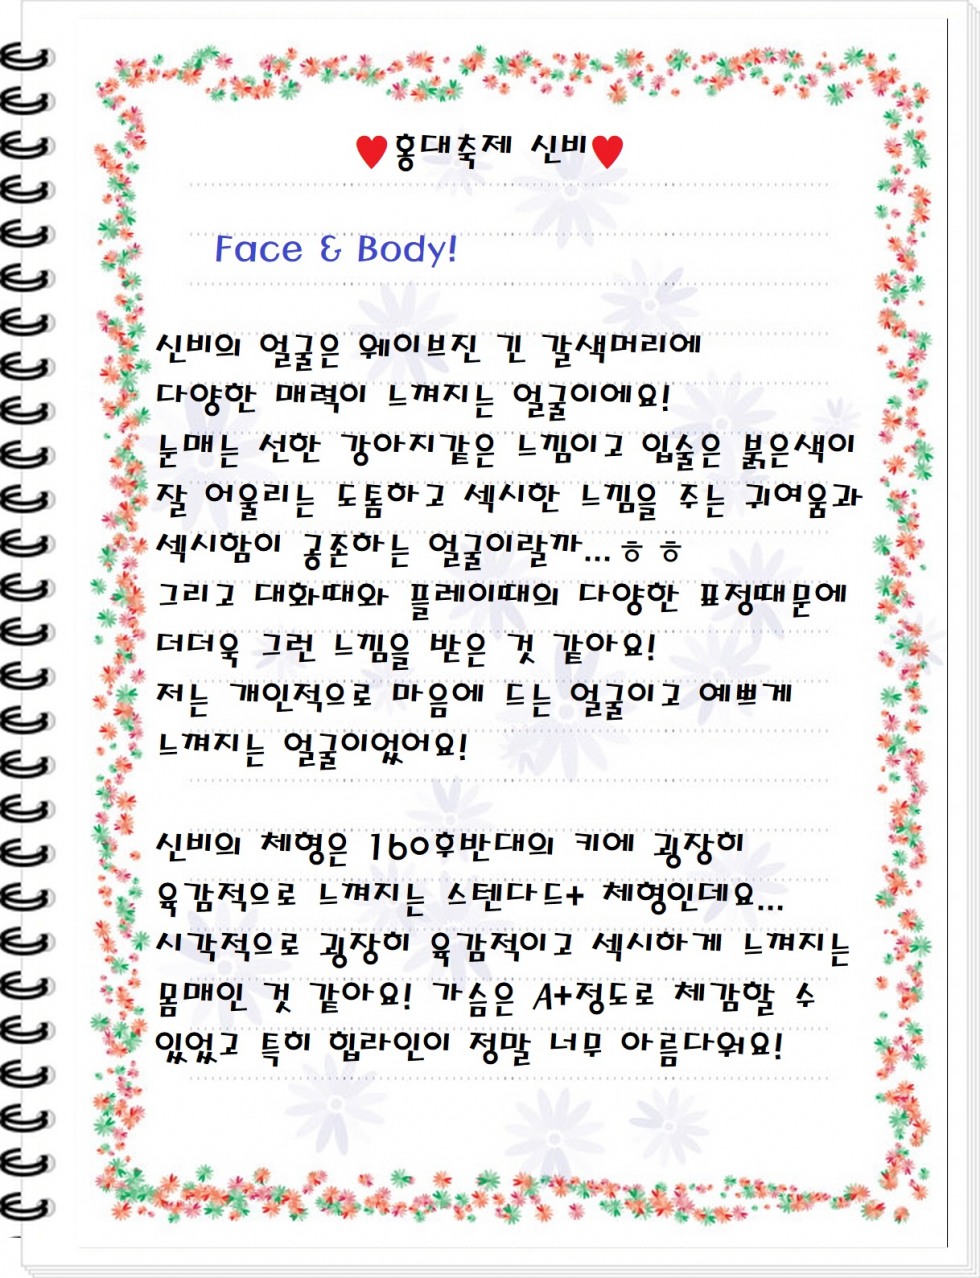 ♥홍대축제 신비♥
Face & Body!
신비의 얼굴은 웨이브진 긴 갈색머리에
다양한 매력이 느껴지는 얼굴이에요!
눈매는 선한 강아지같은 느낌이고 입술은 붉은색이
잘 어울리는 도톰하고 섹시한 느낌을 주는 귀여움과
섹시함이 공존하는 얼굴이랄까... ㅎ ㅎ
그리고 대화때와 플레이때의 다양한 표정때문에
더더욱 그런 느낌을 받은 것 같아요!
저는 개인적으로 마음에 드는 얼굴이고 예쁘게
느껴지는 얼굴이었어요!
신비의 체형은 160후반대의 키에 굉장히
육감적으로 느껴지는 스텐다드+ 체형인데요...
시각적으로 굉장히 육감적이고 섹시하게 느껴지는
몸매인 것 같아요! 가슴은 A+정도로 체감할 수
있었고 특히 힙라인이 정말 너무 아름다워요!